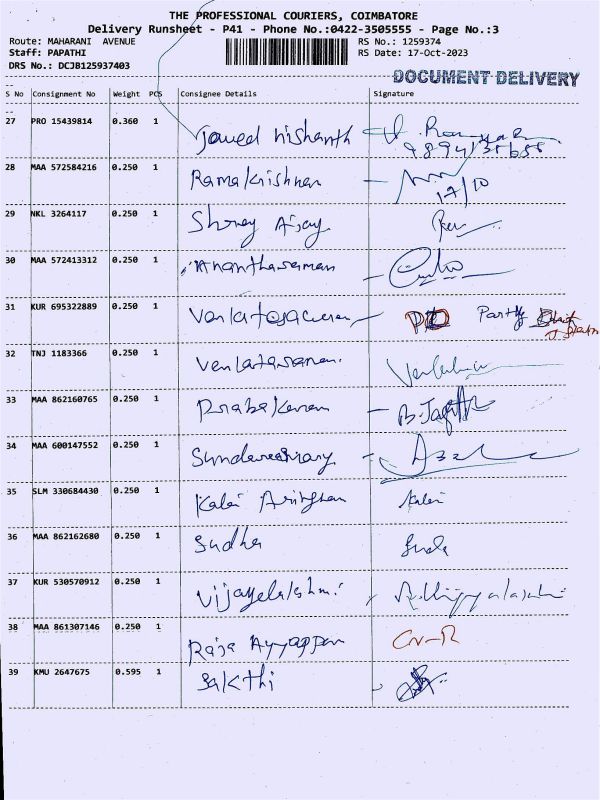 THE PROFESSIONAL COURIERS, COIMBATORE
Delivery Runsheet - P41 - Phone No.:0422-3505555 - Page No.:3
Route: MAHARANI AVENUE RS No.: 1259374
Staff: PAPATHI RS Date: 17-Oct-2023
DRS No.: DCJB125937403
DOCUMENT DELIVERY
S No Consignment No Weight PCS Consignee Details Signature
27 PRO 15439814 0.360 1 nishanth
28 MAA 572584216 0.250 1 Ramakrishnan 17/10
29 NKL 3264117 0.250 1
30 MAA 572413312 0.250 1 Anantharaman
31 KUR 695322889 0.250 1 Party
32 TNJ 1183366 0.250 1 Venkataramani
33 MAA 862160765 0.250 1 Prabakaran
34 MAA 600147552 0.250 1
35 SLM 330684430 0.250 1 Kalai Kalai
36 MAA 862162680 0.250 1 Sudha
37 KUR 530570912 0.250 1 Vijayalakshmi
38 MAA 861307146 0.250 1 Raja Ayyappan
39 KMU 2647675 0.595 1 Sakthi